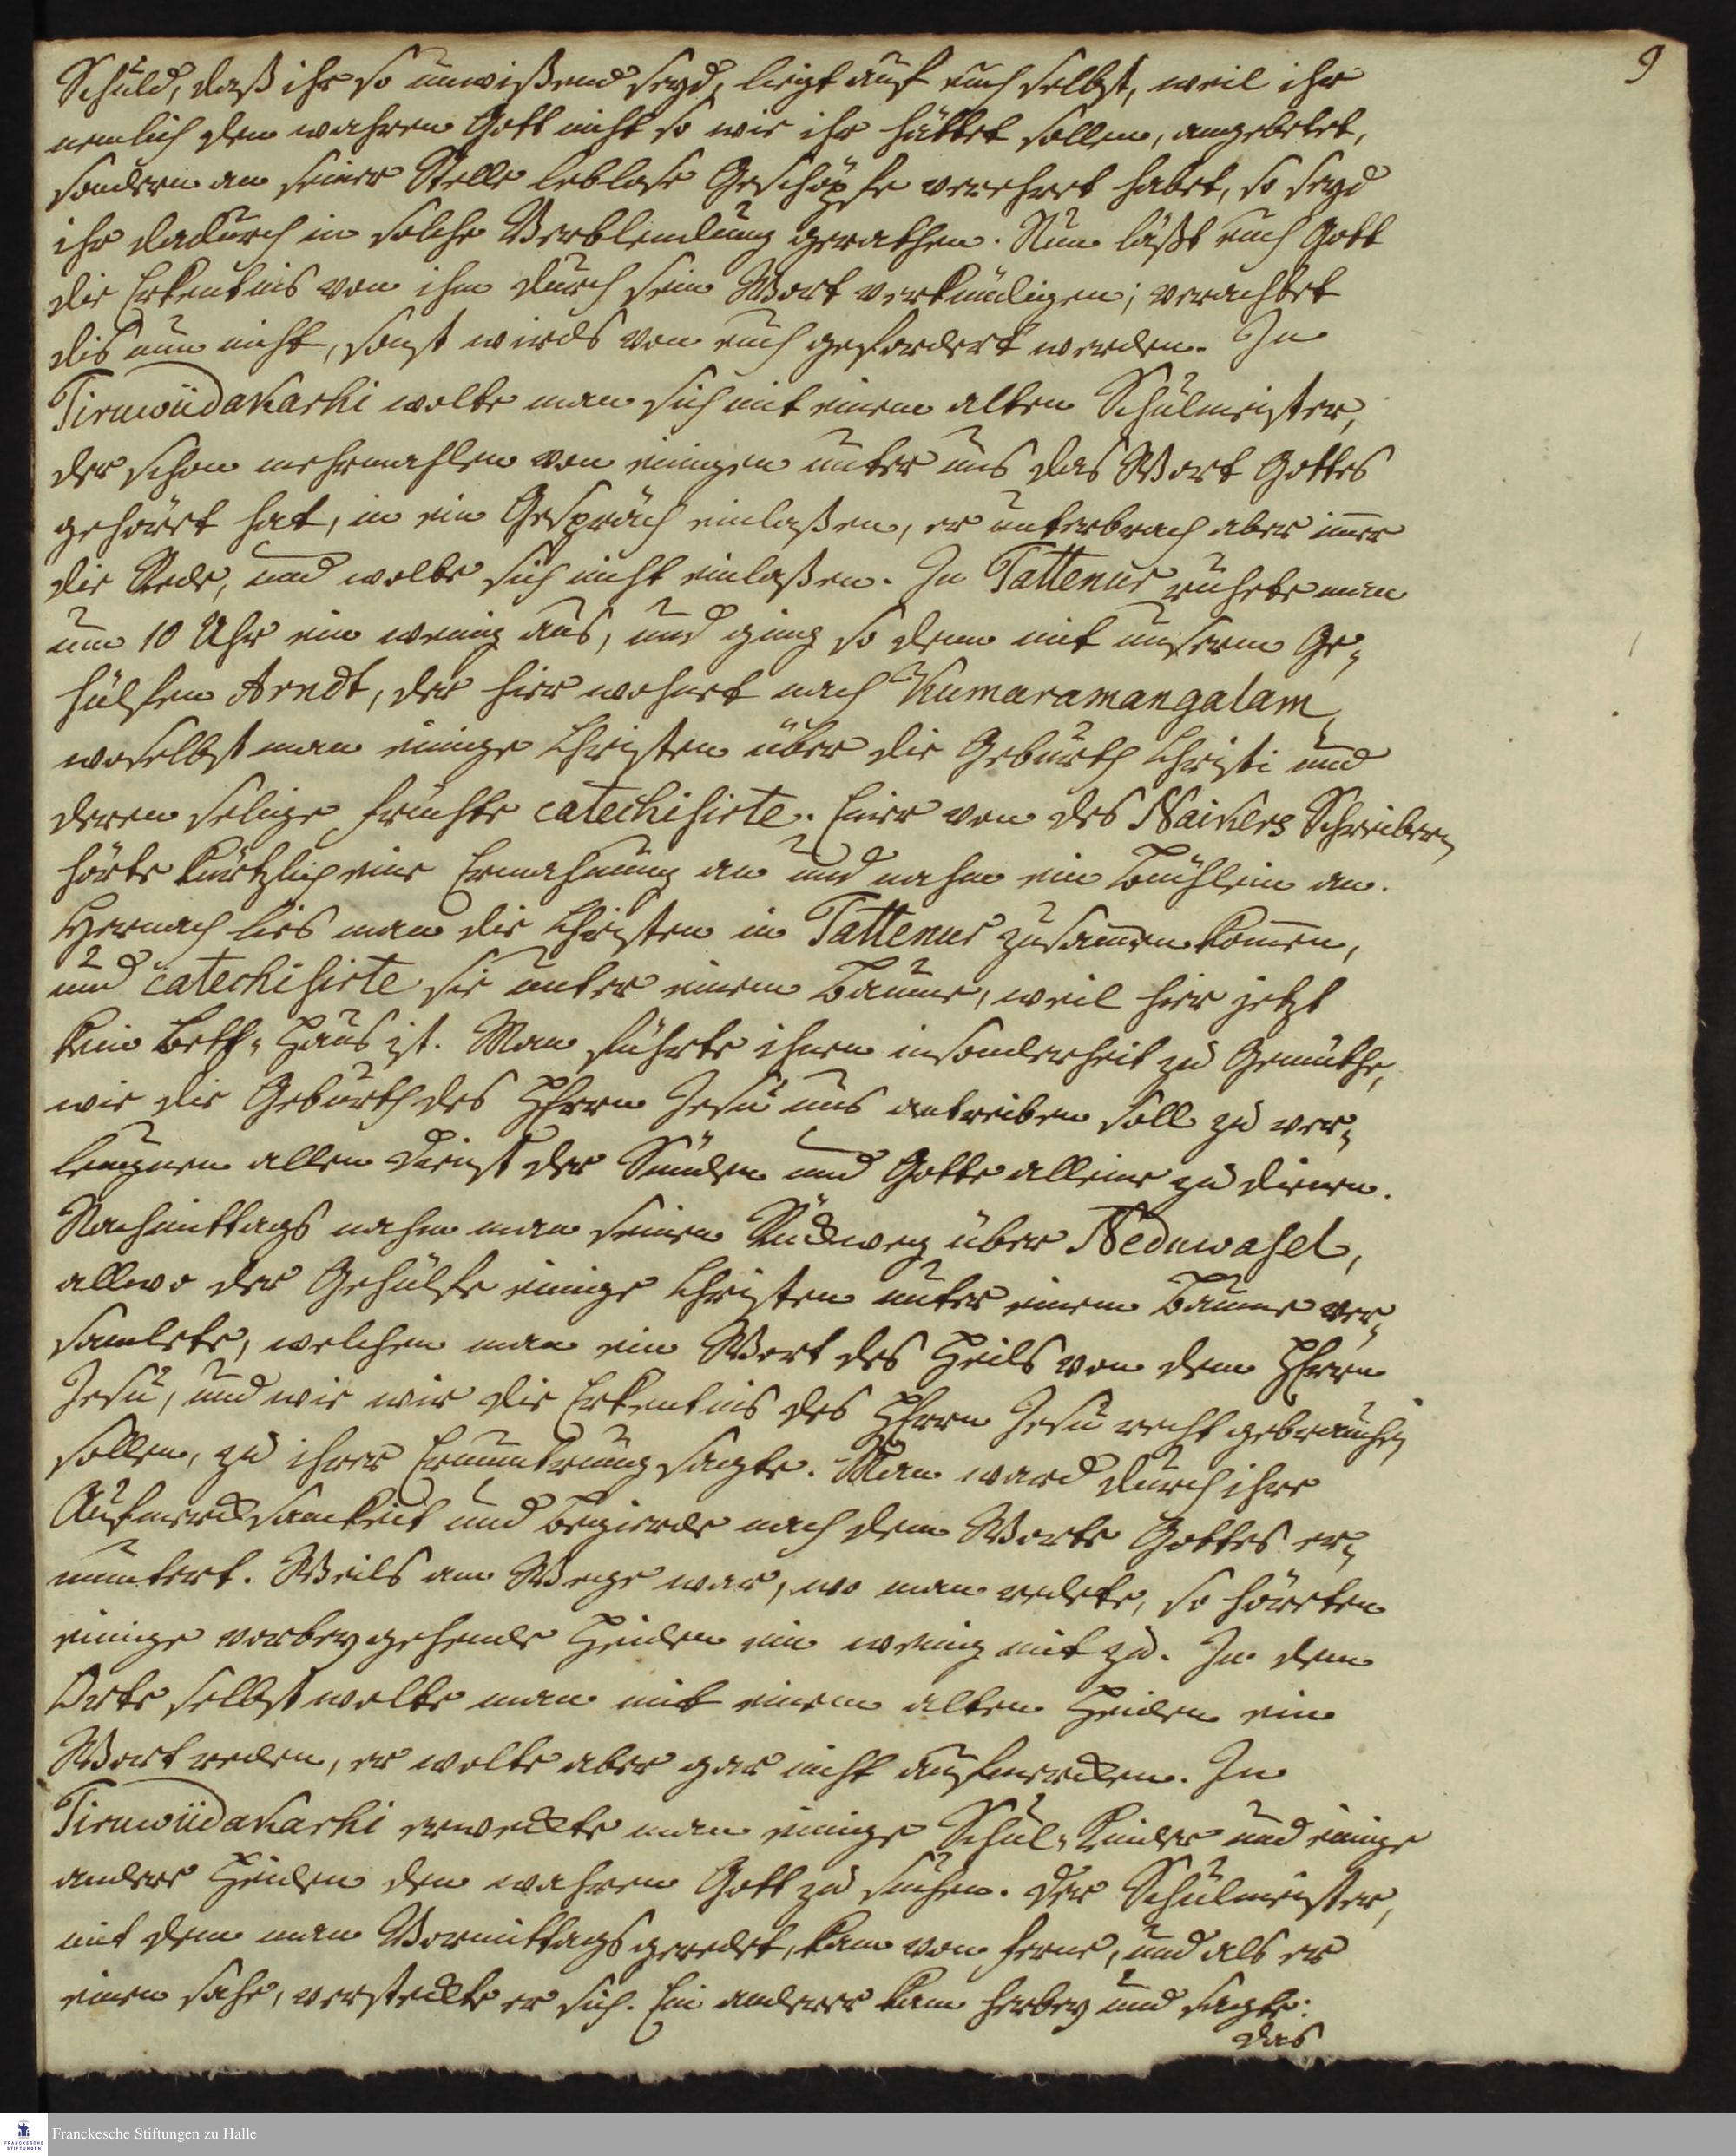 9
Schuld, daß ihr so unwißend seyd, liegt auf euch selbst, weil ihr
nemlich den wahren Gott nicht so wie ihr hättet sollen, angebetet,
sondern an seiner Stelle leblose Geschöpfe verehret habet, so seyd
ihr dadurch in solche Verblendung gerathen. Nun läßt euch Gott
die Erkentnis von ihm durch sein Wort verkündigen; verachtet
dis nun nicht, sonst wirds von euch gefordert werden. In
Tiruwüdakarhi wolte man sich mit einem alten Schulmeister,
der schon mehrmahlen von einigen unter uns das Wort Gottes
gehöret hat, in ein Gespräch einlaßen, er unterbrach aber imer
die Rede, und wolte sich nicht einlaßen. In Tattenur ruhete man
um 10 Uhr ein wenig aus, und ging so denn mit unserm Ge-
hülfen Arndt, der hier wohnet nach Kumaramangalam,
woselbst man einige Christen über die Geburth Christi und
deren selige Früchte catechisirte. Einer von des Naikers Schreibern
hörte kürtzlich eine Ermahnung an und nahm ein Büchlein an.
Hernach lies man die Christen in Tattenur zusamen komen,
und catechisirte sie unter einem Baume, weil hier jetzt
kein Beth-Haus ist. Man führte ihnen insonderheit zu Gemüthe,
wie die Geburth des HErrn Jesu uns antreiben soll zu ver-
leugnen allen Dienst der Sünden und Gotte alleine zu dienen.
Nachmittags nahm man seinen Rückweg über Neduwasel,
allwo der Gehülfe einige Christen unter einem Baume ver-
samlete, welchen man ein Wort des Heils von dem HErrn
Jesu, und wie wir die Erkentnis des HErrn Jesu recht gebrauchen
sollen, zu ihrer Ermuntrung sagte. Man ward durch ihre
Aufmercksamkeit und Begierde nach dem Worte Gottes er-
muntert. Weils am Wege war, wo man redete, so höreten
einige vorbeygehende Heiden ein wenig mit zu. In dem
Orte selbst wolte man mit einem alten Heiden ein
Wort reden, er wolte aber gar nicht aufmercken. In
Tiruwüdakarhi erweckte man einige Schul-Kinder und einige
andere Heiden den wahren Gott zu suchen. Der Schulmeister,
mit dem man Vormittags geredet, kam von ferne, und als er
einen sahe, versteckte er sich. Ein anderer kam herbey und sagte:
das
Franckesche Stiftungen zu Halle